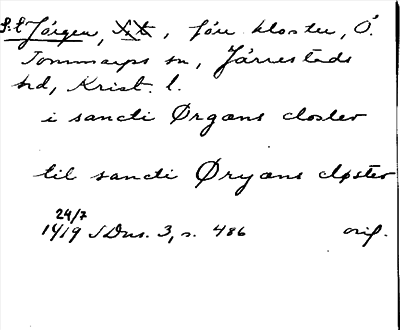 S:t Jörgen, , förr kloster, Ö.
Tommarps sn, Järrestads
hd, Krist. l.
i sancti Ørgæns closter
til sancti Øryæns cløster
24/7
1419 SDns. 3, s. 486 orig.